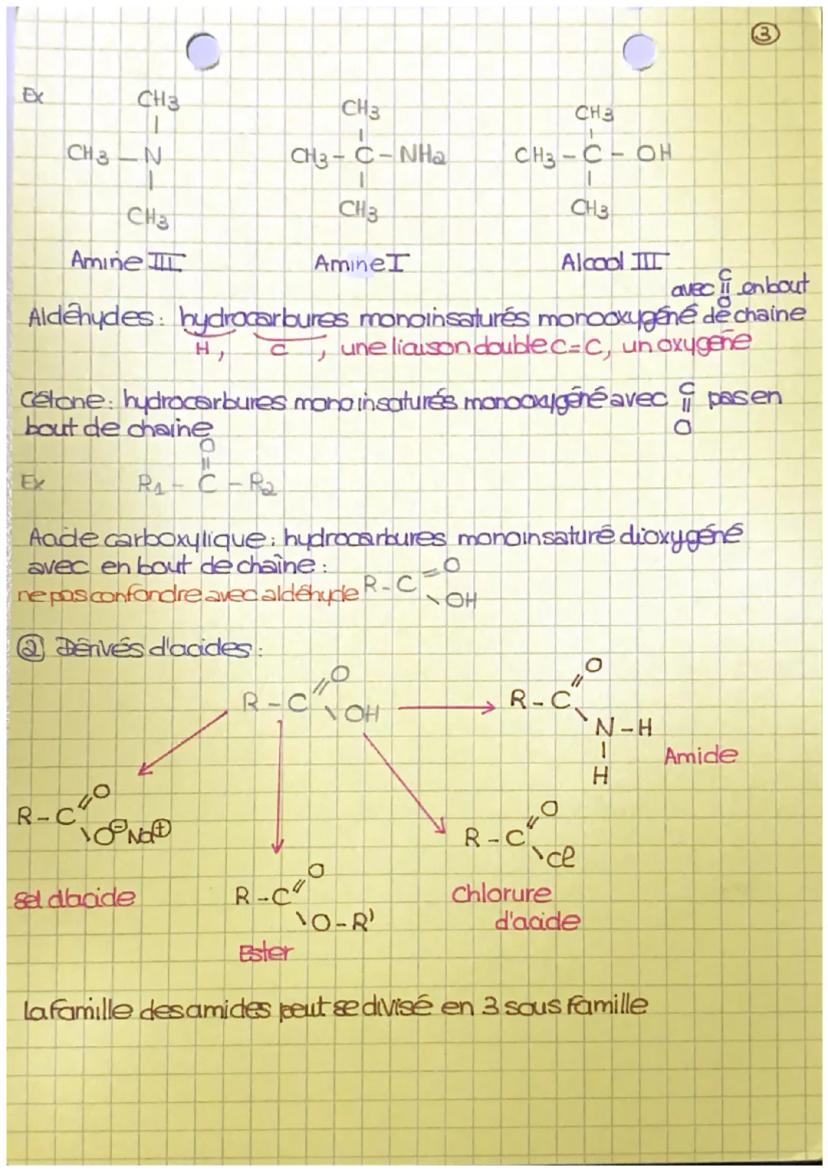 3
Ex
CH3 CH3 CH3
CH3 - N CH3 - C - NH2 CH3 - C - OH
CH3 CH3 CH3
Amine III Amine I Alcool III
avec C=O en bout
Aldéhydes : hydrocarbures monoinsaturés monooxygéné de chaine
H, C, une liaison double C=C, un oxygène
Cétone : hydrocarbures monoinsaturés monooxygéné avec C=O pas en
bout de chaine
O
Ex R1 - C - R2
Acide carboxylique : hydrocarbures monoinsaturé dioxygéné
avec en bout de chaîne :
ne pas confondre avec aldéhyde R-C=O
OH
② Dérivés d'acides :
R-C=O
OH
R-C=O
N-H
H
Amide
R-C=O
O⊖Na⊕
Sel d'acide
R-C=O
O-R'
Ester
R-C=O
Cl
Chlorure
d'acide
la famille des amides peut se divisé en 3 sous famille